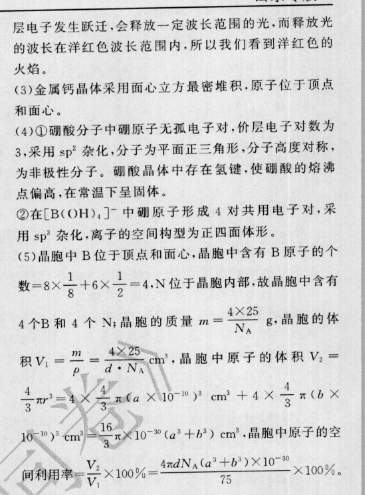 层电子发生跃迁,会释放一定波长范围的光,而释放光
的波长在洋红色波长范围内,所以我们看到洋红色的
火焰。
(3)金属钙晶体采用面心立方最密堆积,原子位于顶点
和面心。
(4)①硼酸分子中硼原子无孤电子对,价层电子对数为
3,采用 sp² 杂化,分子为平面正三角形,分子高度对称,
为非极性分子。硼酸晶体中存在氢键,使硼酸的熔沸
点偏高,在常温下呈固体。
②在[B(OH)₄]⁻ 中硼原子形成 4 对共用电子对,采
用 sp³ 杂化,离子的空间构型为正四面体形。
(5)晶胞中 B 位于顶点和面心,晶胞中含有 B 原子的个
数=8×1/8+6×1/2=4,N 位于晶胞内部,故晶胞中含有
4个B 和 4 个 N;晶胞的质量 m=4×25/N_A g,晶胞的体
积 V₁=m/ρ=4×25/(d·N_A) cm³,晶胞中原子的体积 V₂=
4/3πr³=4×4/3π(a×10⁻¹⁰)³ cm³+4×4/3π(b×
10⁻¹⁰)³ cm³=16/3π×10⁻³⁰(a³+b³) cm³,晶胞中原子的空
间利用率=V₂/V₁×100%=4πdN_A(a³+b³)×10⁻³⁰/75×100%。